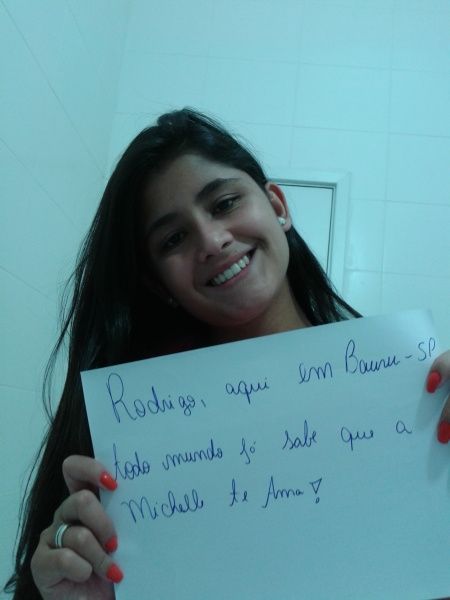 Rodrigo, aqui em Bauru-SP
todo mundo já sabe que a
Michelle te Ama!